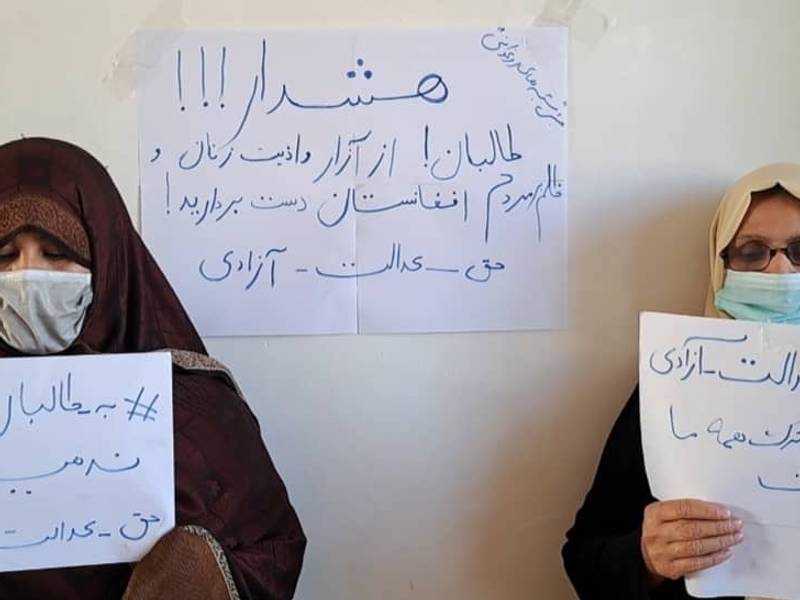 هشدار!!!
طالبان! از آزار و اذیت زنان و
ظلم بر مردم افغانستان دست بردارید!
حق - عدالت - آزادی
# به_طالبان
نه می
حق - عدالت
عدالت - آزادی
همه ما